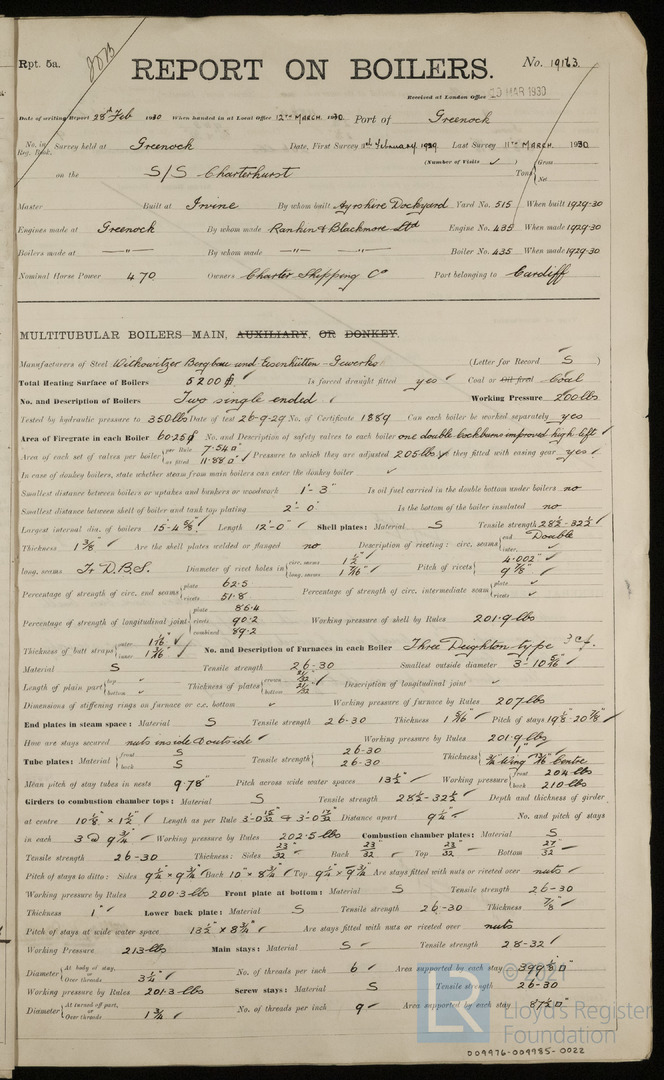 Rpt. 5a.
REPORT ON BOILERS.
No. 19163
Received at London Office 20 MAR 1930
Date of writing Report 28th Feb 1930 When handed in at Local Office 12TH MARCH 1930 Port of Greenock
No. in Reg. Book. Survey held at Greenock Date, First Survey February 1929 Last Survey 11TH MARCH 1930
on the S/S Charterhurst (Number of Visits ) Tons { Gross Net
Master Built at Irvine By whom built Ayrshire Dockyard Yard No. 515 When built 1929-30
Engines made at Greenock By whom made Rankin & Blackmore Ltd Engine No. 435 When made 1929-30
Boilers made at — " — By whom made — " — Boiler No. 435 When made 1929-30
Nominal Horse Power 470 Owners Charter Shipping Co Port belonging to Cardiff
MULTITUBULAR BOILERS MAIN, AUXILIARY, OR DONKEY.
Manufacturers of Steel Witkowitzer Bergbau und Eisenhütten-Gewerks (Letter for Record S )
Total Heating Surface of Boilers 5200 Is forced draught fitted yes Coal or Oil fired Coal
No. and Description of Boilers Two single ended Working Pressure 200 lbs
Tested by hydraulic pressure to 350 lbs Date of test 26-9-29 No. of Certificate 1889 Can each boiler be worked separately yes
Area of Firegrate in each Boiler 60.25 No. and Description of safety valves to each boiler one double Cockburns improved high lift
Area of each set of valves per boiler { per Rule 7.54 □" as fitted 11.88 □" Pressure to which they are adjusted 205 lbs Are they fitted with easing gear yes
In case of donkey boilers, state whether steam from main boilers can enter the donkey boiler ✓
Smallest distance between boilers or uptakes and bunkers or woodwork 1'- 3" Is oil fuel carried in the double bottom under boilers no
Smallest distance between shell of boiler and tank top plating 2'- 0" Is the bottom of the boiler insulated no
Largest internal dia. of boilers 15'-4 5/8" Length 12'-0" Shell plates: Material S Tensile strength 28½-32½
Thickness 1 3/8" Are the shell plates welded or flanged no Description of riveting: circ. seams { end Double inter. ✓
long. seams Tr. D.B.S. Diameter of rivet holes in { circ. seams 1½" long. seams 1 7/16" Pitch of rivets { 4.002" 9 7/8"
Percentage of strength of circ. end seams { plate 62.5 rivets 51.8 Percentage of strength of circ. intermediate seam { plate ✓ rivets ✓
Percentage of strength of longitudinal joint { plate 86.4 rivets 90.2 combined 89.2 Working pressure of shell by Rules 201.9 lbs
Thickness of butt straps { outer 1 1/16" inner 1 3/16" No. and Description of Furnaces in each Boiler Three Deighton type 3 c.f.
Material S Tensile strength 26-30 Smallest outside diameter 3'-10 5/16"
Length of plain part { top ✓ bottom ✓ Thickness of plates { crown 21/32" bottom 21/32" Description of longitudinal joint ✓
Dimensions of stiffening rings on furnace or c.c. bottom ✓ Working pressure of furnace by Rules 207 lbs
End plates in steam space: Material S Tensile strength 26-30 Thickness 1 5/16" Pitch of stays 19⅞-20⅞"
How are stays secured nuts inside & outside Working pressure by Rules 201.9 lbs
Tube plates: Material { front S back S Tensile strength { 26-30 26-30 Thickness { 1" ¾" Wing 13/16" Centre
Mean pitch of stay tubes in nests 9.78" Pitch across wide water spaces 13½" Working pressure { front 204 lbs back 210 lbs
Girders to combustion chamber tops: Material S Tensile strength 28½-32½ Depth and thickness of girder
at centre 10⅛" × 1½" Length as per Rule 3'-0 15/32" & 3'-0 17/32" Distance apart 9¼" No. and pitch of stays
in each 3 @ 9¾" Working pressure by Rules 202.5 lbs Combustion chamber plates: Material S
Tensile strength 26-30 Thickness: Sides 23/32" Back 23/32" Top 23/32" Bottom 27/32"
Pitch of stays to ditto: Sides 9¼" × 9¾" Back 10" × 8¾" Top 9¼" × 9¾" Are stays fitted with nuts or riveted over nuts
Working pressure by Rules 200.3 lbs Front plate at bottom: Material S Tensile strength 26-30
Thickness 1" Lower back plate: Material S Tensile strength 26-30 Thickness 7/8"
Pitch of stays at wide water space 13½" × 8¾" Are stays fitted with nuts or riveted over nuts
Working Pressure 213 lbs Main stays: Material S Tensile strength 28-32
Diameter { At body of stay, or Over threads 3¼" No. of threads per inch 6 Area supported by each stay 399⅛ □"
Working pressure by Rules 201.3 lbs Screw stays: Material S Tensile strength 26-30
Diameter { At turned off part, or Over threads 1¾" No. of threads per inch 9 Area supported by each stay 87½ □"
© 2021
LR Lloyd's Register Foundation
009976-009985-0022